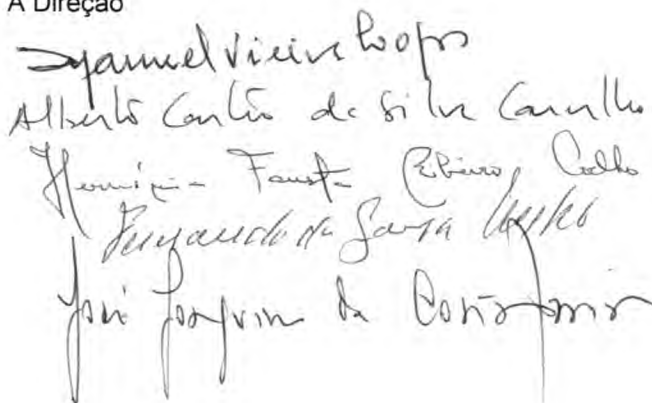 A Direção
Manuel Vieira Lopes
Alberto da Silva Carvalho
Fausta Ribeiro Coelho
Fernando da
José Joaquim da Costa